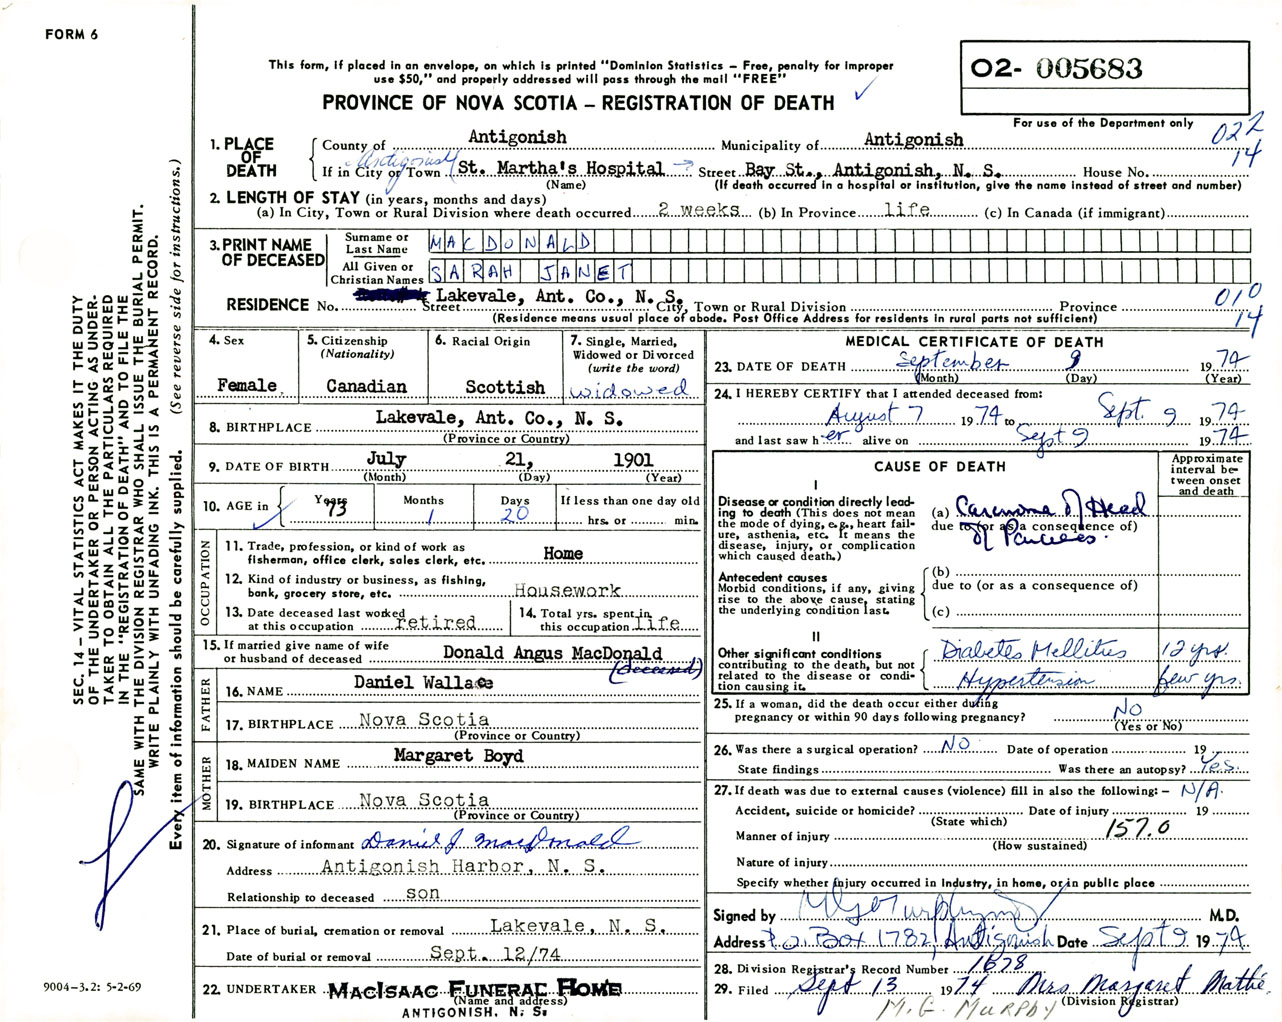 FORM 6
This form, if placed in an envelope, on which is printed "Dominion Statistics – Free, penalty for improper
use $50," and properly addressed will pass through the mail "FREE"
PROVINCE OF NOVA SCOTIA – REGISTRATION OF DEATH
O2- 005683
For use of the Department only
022
14
1. PLACE OF DEATH
County of Antigonish Municipality of Antigonish
Antigonish
If in City or Town St. Martha's Hospital Street Bay St., Antigonish, N. S. House No.
(Name) (If death occurred in a hospital or institution, give the name instead of street and number)
2. LENGTH OF STAY (in years, months and days)
(a) In City, Town or Rural Division where death occurred 2 weeks (b) In Province life (c) In Canada (if immigrant)
3. PRINT NAME OF DECEASED
Surname or Last Name MACDONALD
All Given or Christian Names SARAH JANET
RESIDENCE No. Street Lakevale, Ant. Co., N. S. City, Town or Rural Division Province
(Residence means usual place of abode. Post Office Address for residents in rural parts not sufficient)
010
14
4. Sex Female
5. Citizenship (Nationality) Canadian
6. Racial Origin Scottish
7. Single, Married, Widowed or Divorced (write the word) widowed
8. BIRTHPLACE Lakevale, Ant. Co., N. S.
(Province or Country)
9. DATE OF BIRTH July 21, 1901
(Month) (Day) (Year)
10. AGE in Years 73 Months 1 Days 20 If less than one day old hrs. or min.
OCCUPATION
11. Trade, profession, or kind of work as
fisherman, office clerk, sales clerk, etc. Home
12. Kind of industry or business, as fishing,
bank, grocery store, etc. Housework
13. Date deceased last worked
at this occupation retired
14. Total yrs. spent in
this occupation life
15. If married give name of wife
or husband of deceased Donald Angus MacDonald
(deceased)
FATHER
16. NAME Daniel Wallace
17. BIRTHPLACE Nova Scotia
(Province or Country)
MOTHER
18. MAIDEN NAME Margaret Boyd
19. BIRTHPLACE Nova Scotia
(Province or Country)
20. Signature of informant Daniel J MacDonald
Address Antigonish Harbor, N. S.
Relationship to deceased son
21. Place of burial, cremation or removal Lakevale, N. S.
Date of burial or removal Sept. 12/74
22. UNDERTAKER MacIsaac Funeral Home
(Name and address)
ANTIGONISH, N. S.
MEDICAL CERTIFICATE OF DEATH
23. DATE OF DEATH September 9 1974
(Month) (Day) (Year)
24. I HEREBY CERTIFY that I attended deceased from:
August 7 1974 to Sept. 9 1974
and last saw her alive on Sept 9 1974
CAUSE OF DEATH
Approximate interval between onset and death
I
Disease or condition directly leading to death (This does not
mean the mode of dying, e.g., heart failure, asthenia, etc. It means the
disease, injury, or complication
which caused death.)
(a) Carcinoma of Head
due to (or as a consequence of)
of Pancreas.
Antecedent causes
Morbid conditions, if any, giving
rise to the above cause, stating
the underlying condition last.
(b)
due to (or as a consequence of)
(c)
II
Other significant conditions
contributing to the death, but not
related to the disease or condition causing it.
Diabetes Mellitus 12 yrs.
Hypertension few yrs.
25. If a woman, did the death occur either during
pregnancy or within 90 days following pregnancy? No
(Yes or No)
26. Was there a surgical operation? No Date of operation 19
State findings Was there an autopsy? Yes.
27. If death was due to external causes (violence) fill in also the following: – N/A.
Accident, suicide or homicide? Date of injury 19
(State which)
157.0
Manner of injury
(How sustained)
Nature of injury
Specify whether injury occurred in Industry, in home, or in public place
Signed by M.D.
Address P.O. Box 1782, Antigonish Date Sept 9 1974
28. Division Registrar's Record Number 1678
29. Filed Sept 13 1974 Mrs Margaret Mathé
(Division Registrar)
M. G. MURPHY
SEC. 14 – VITAL STATISTICS ACT MAKES IT THE DUTY
OF THE UNDERTAKER OR PERSON ACTING AS UNDER-
TAKER TO OBTAIN ALL THE PARTICULARS REQUIRED
IN THE "REGISTRATION OF DEATH" AND TO FILE THE
SAME WITH THE DIVISION REGISTRAR WHO SHALL ISSUE THE BURIAL PERMIT.
WRITE PLAINLY WITH UNFADING INK. THIS IS A PERMANENT RECORD.
Every item of information should be carefully supplied. (See reverse side for instructions.)
9004-3.2: 5-2-69